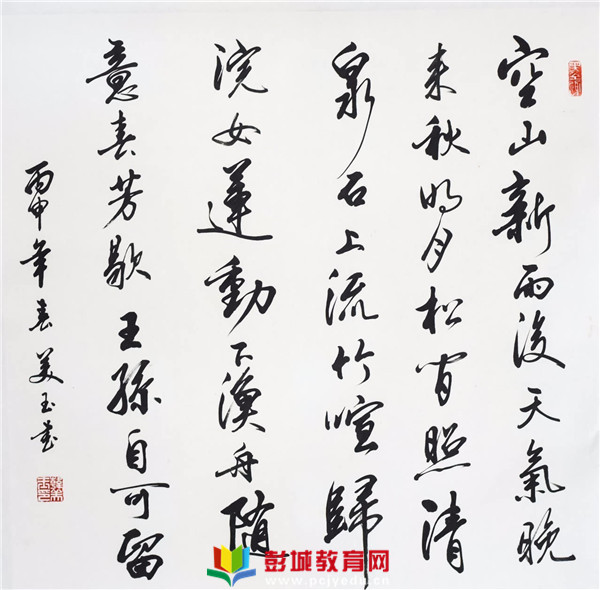 空山新雨後天氣晚
来秋明月松间照清
泉石上流竹喧歸
浣女蓮動下漁舟随
意春芳歇王孫自可留
丙申年春美玉书
彭城教育网
www.pcjyedu.cn